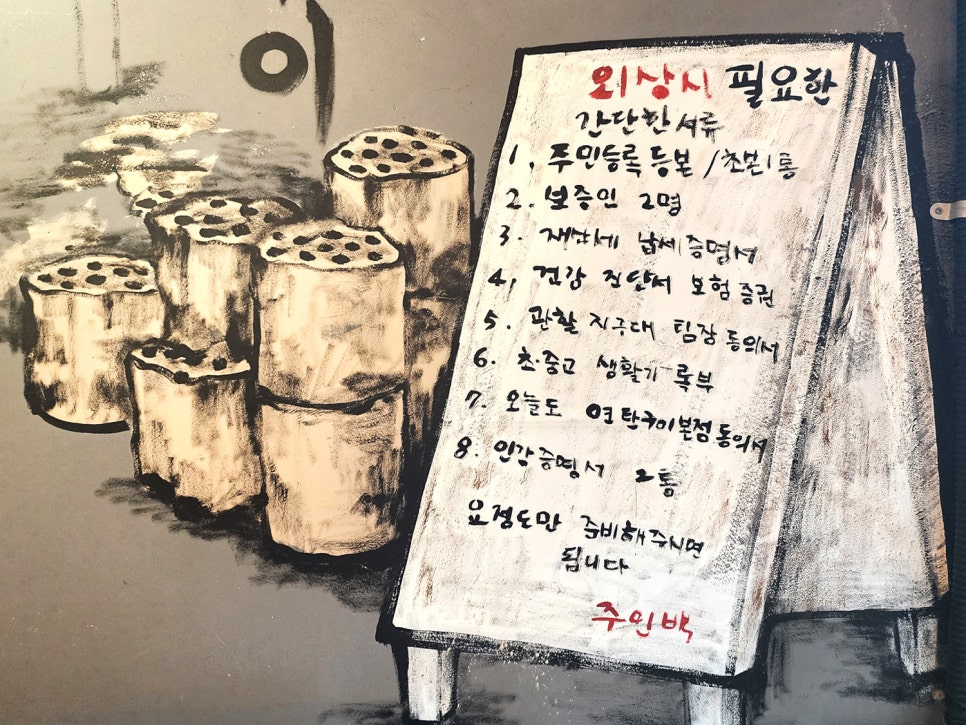 이
외상시 필요한
간단한 서류
1. 주민등록등본 / 초본 1통
2. 보증인 2명
3. 재산세 납세증명서
4. 건강 진단서 보험증권
5. 관할 지구대 팀장 동의서
6. 초.중고 생활기록부
7. 오늘도 연탄구이본점동의서
8. 인감증명서 2통
요정도만 준비해주시면
됩니다
주인백